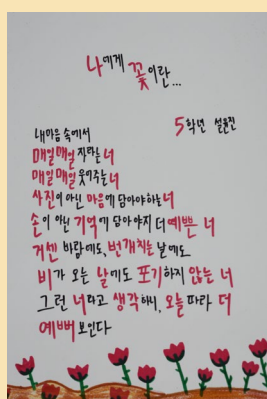 나에게 꽃이란...
5학년 설윤진
내 마음 속에서
매일매일 자라는 너
매일매일 웃어주는 너
사진이 아닌 마음에 담아야하는 너
손이 아닌 기억에 담아야지 더 예쁜 너
거센 바람에도, 번개치는 날에도
비가 오는 날에도 포기하지 않는 너
그런 너라고 생각하니, 오늘 따라 더
예뻐 보인다